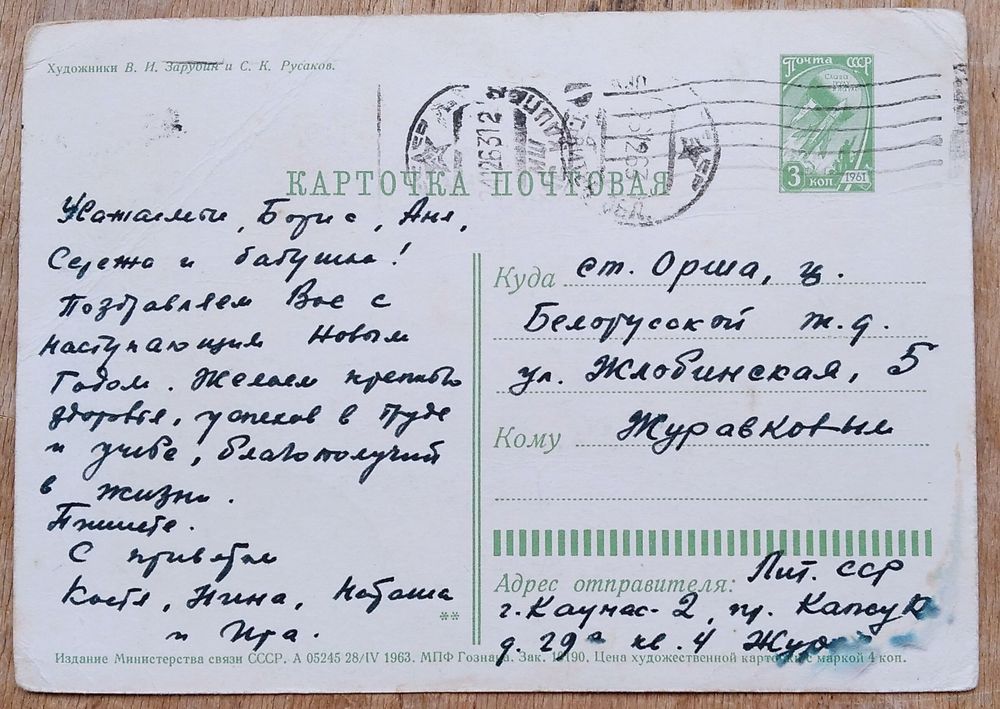 Художники В. И. Зарубин и С. К. Русаков.
Почта СССР
Слава
3 коп
1961
КАРТОЧКА ПОЧТОВАЯ
Уважаемые, Борис, Аня,
Сережа и бабушка!
Поздравляем Вас с
наступающим Новым
Годом. Желаем крепкого
здоровья, успехов в труде
и учебе, благополучий
в жизни.
Пишите.
С приветом
Костя, Нина, Наташа
и Ира.
Куда ст. Орша, ц.
Белорусской ж.д.
ул. Жлобинская, 5
Кому Журавковым
Адрес отправителя: Лит. ССР
г. Каунас-2, пр. Капсука
д. 29а кв. 4
Издание Министерства связи СССР. А 05245 28/IV 1963. МПФ Гознака. Зак. Цена художественной карточки с маркой 4 коп.